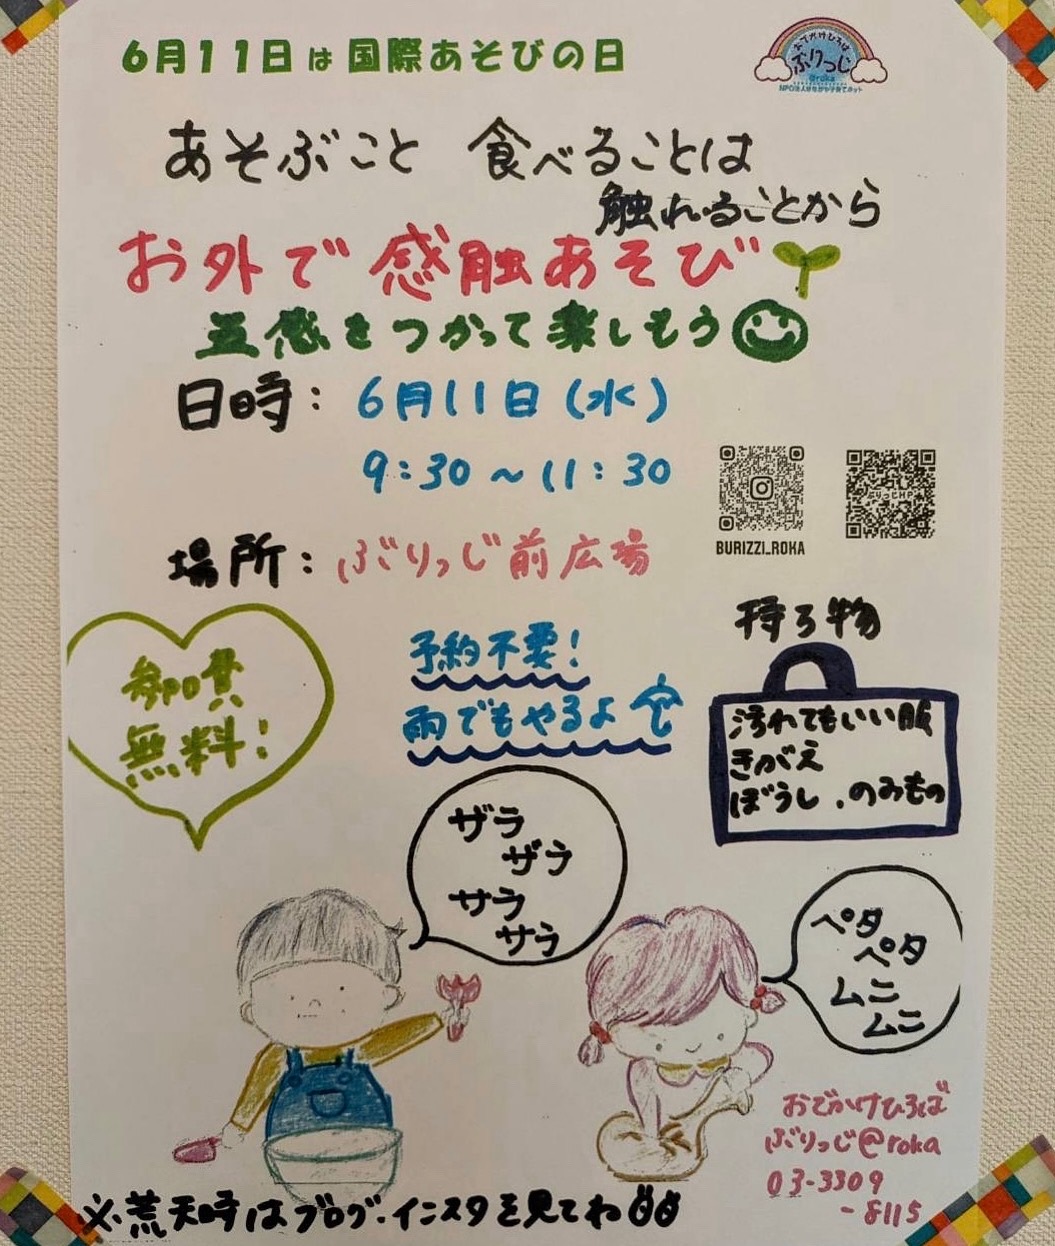 6月11日は国際あそびの日
おでかけひろば
ぶりっじ
@roka
NPO法人せたがや子育てネット
あそぶこと 食べることは
触れることから
お外で感触あそび
五感をつかって楽しもう
日時：6月11日(水)
9:30～11:30
BURIZZI_ROKA
ぶりっじHP
場所：ぶりっじ前広場
参加費
無料！
予約不要！
雨でもやるよ
持ち物
汚れてもいい服
きがえ
ぼうし、のみもの
ザラ
ザラ
サラ
サラ
ペタ
ペタ
ムニ
ムニ
おでかけひろば
ぶりっじ@roka
03-3309
-8115
※荒天時はブログ・インスタを見てね